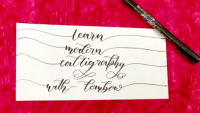 learn
modern
calligraphy
with Tombow